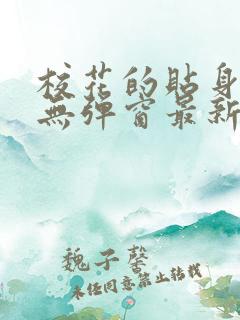 校花的貼身
無彈窗最新
魏子馨
未任同意禁止转载